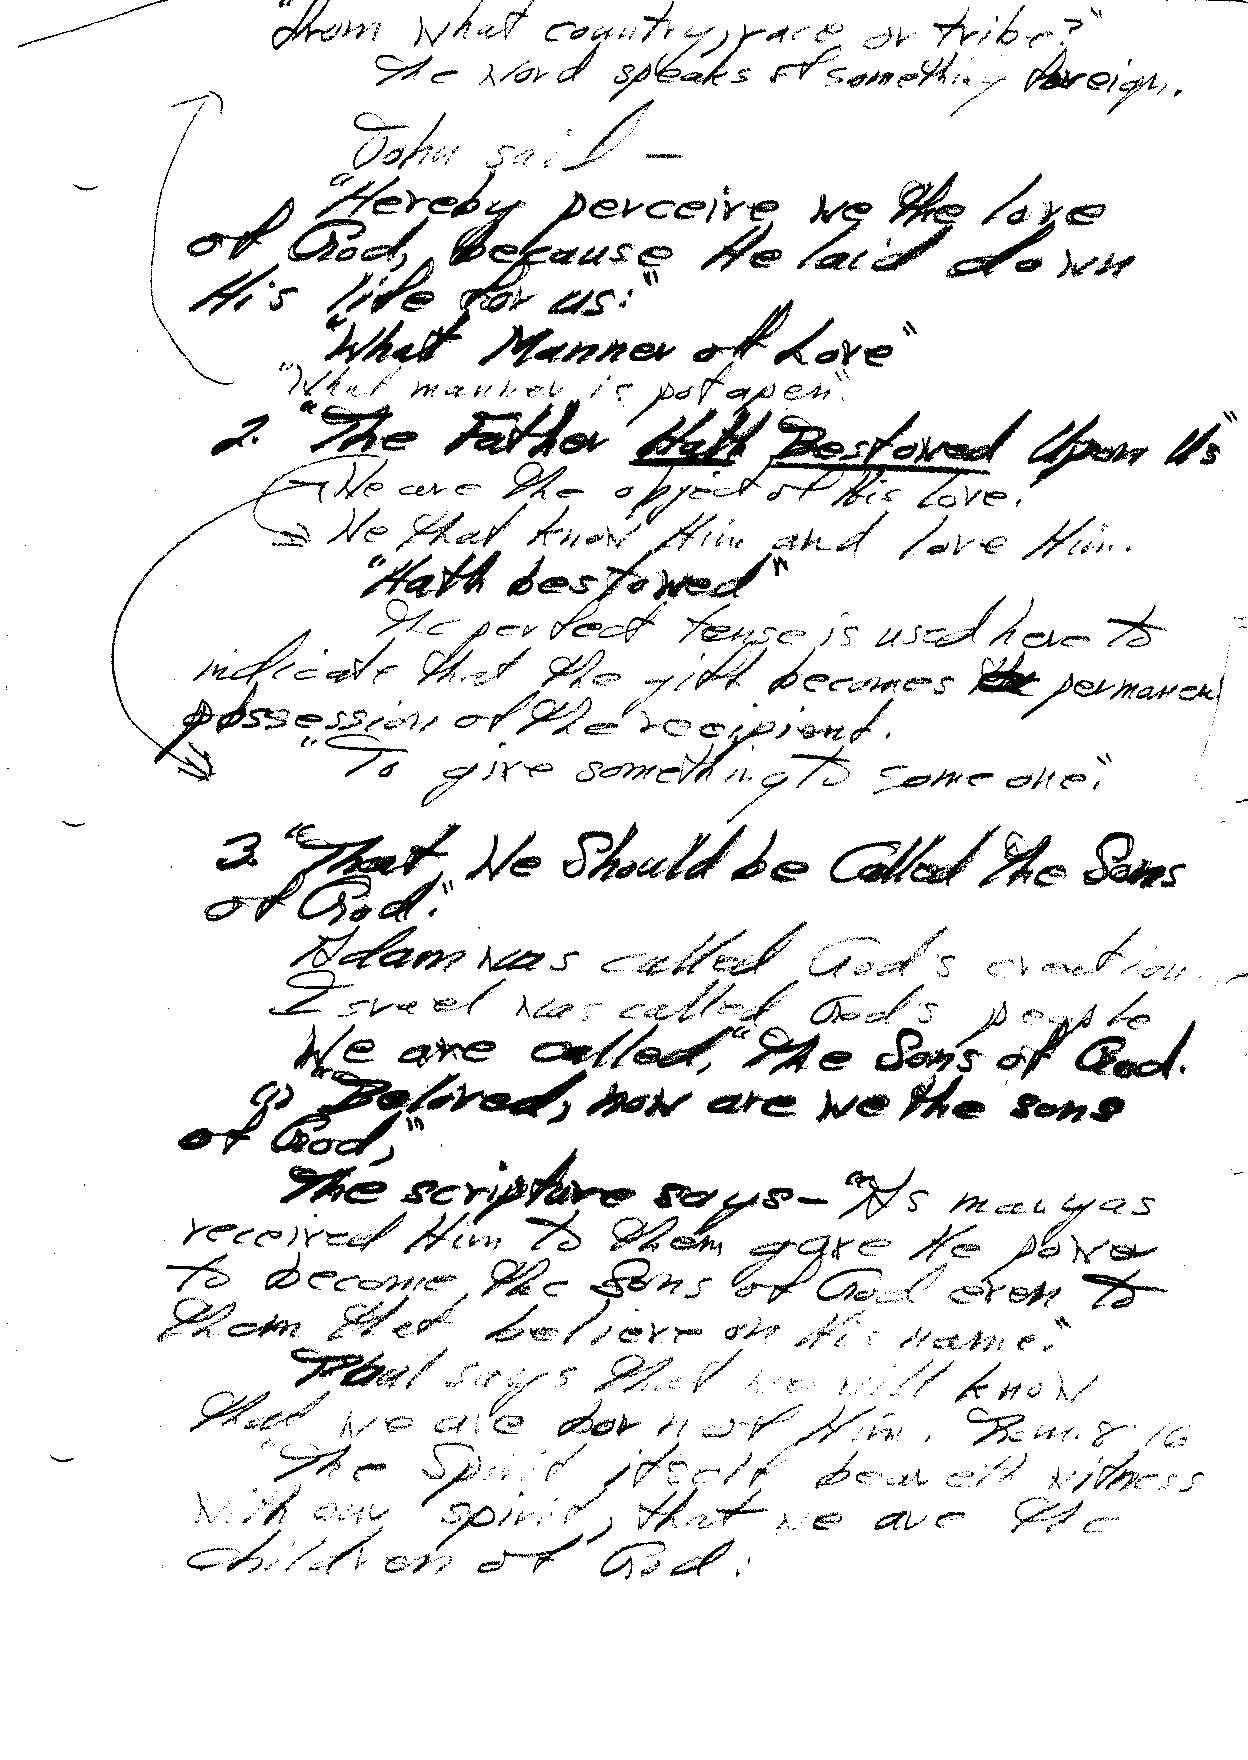 "from what country, race or tribe?"
The word speaks of something foreign.
John said —
"Hereby perceive we the love
of God, because He laid down
His life for us:"
"What Manner of Love"
"What manner is potapen"
2. "The Father Hath Bestowed Upon Us"
We are the object of His love.
We that know Him and love Him.
"Hath bestowed"
The perfect tense is used here to
indicate that the gift becomes permanent
possession of the recipient.
"To give something to some one."
3. "That We Should be Called The Sons
of God."
Adam was called God's creation
Israel was called God's people
We are called, "The Sons of God.
a) "Beloved, now are we the sons
of God,"
The scripture says – "As many as
received Him to them gave He power
to become the Sons of God even to
them that believe on His name."
Paul says that we will know
that we are born of Him. Rom. 8:16
"The Spirit itself beareth witness
with our spirit, that we are the
children of God: